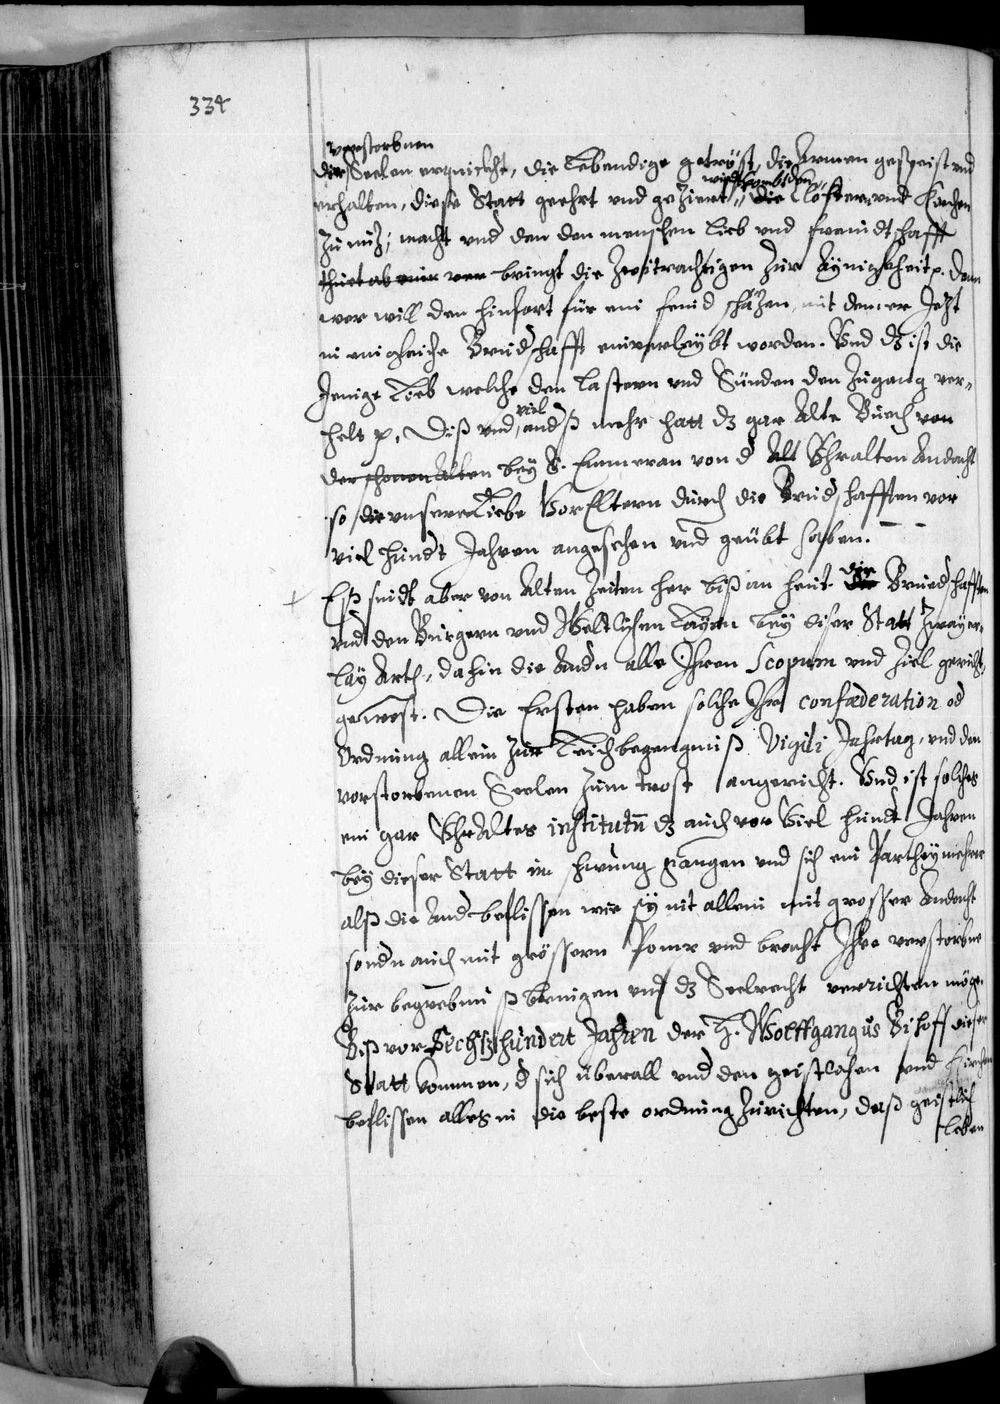 334
verstorbnen
die Seelen erquickht, die Lebendige getröst, die Armen gespeist vnd
erhalten, dise Statt geehrt vnd geziert, die Clöster vnd Kirchen
zu nuz, macht vnd den den menschen Lieb vnd freundtschafft
bringt die Zwitrachtigen zur Aynigkheit p. Dann
wer will den hinfort für ein feind schäzen, mit dem er Jezt
in ein gleiche Brudschafft einverleybt worden. Vnd dz ist die
Jenige Lieb welche den Lastern vnd Sünden den Zugang ver-
helt p. Diß vnd viel andß mehr hatt dz gar Alte Buech von
der schonen Alten bey S. Emmeran von d Alt Vhralten Andacht
so die vnsere Liebe Vor Eltern durch die Brudschafften vor
viel hundt Jahren angesehen vnd geübt haben.
Eß seindt aber von Alten Zeiten her biß an heut die Bruedschafften
vnd den Burgern vnd Weltlichen Layen bey diser Statt Zwayer-
lay Arth, dahin die Andn alle Ihren Scopum vnd Ziel gericht,
gewest. Die Ersten haben solche Ihr confæderation od
Ordnung allein zur Leichbegengniß Vigili Jahrtag, vnd den
verstorbenen Seelen zum trost angericht. Vnd ist solches
ein gar VhrAltes institutū dz auch vor Viel hundt Jahren
bey dieser Statt im schwung gangen vnd sich ein Parthey mehrer
alß die And beflissen wie sy nit allein mit grosser Andacht
sondn auch mit grössern Pomp vnd bracht Ihre verstorbne
zur begrebnuß bringen vnd dz Seelrecht verrichten möge.
Biß vor Sechtzhundert Jahren der H. Wolffgangus Bischoff dieser
Statt kommen, d sich überall vnd den geistlichen vnd Kirchen
beflissen alles in die beste ordnung zurichten, daß geistlich
leben